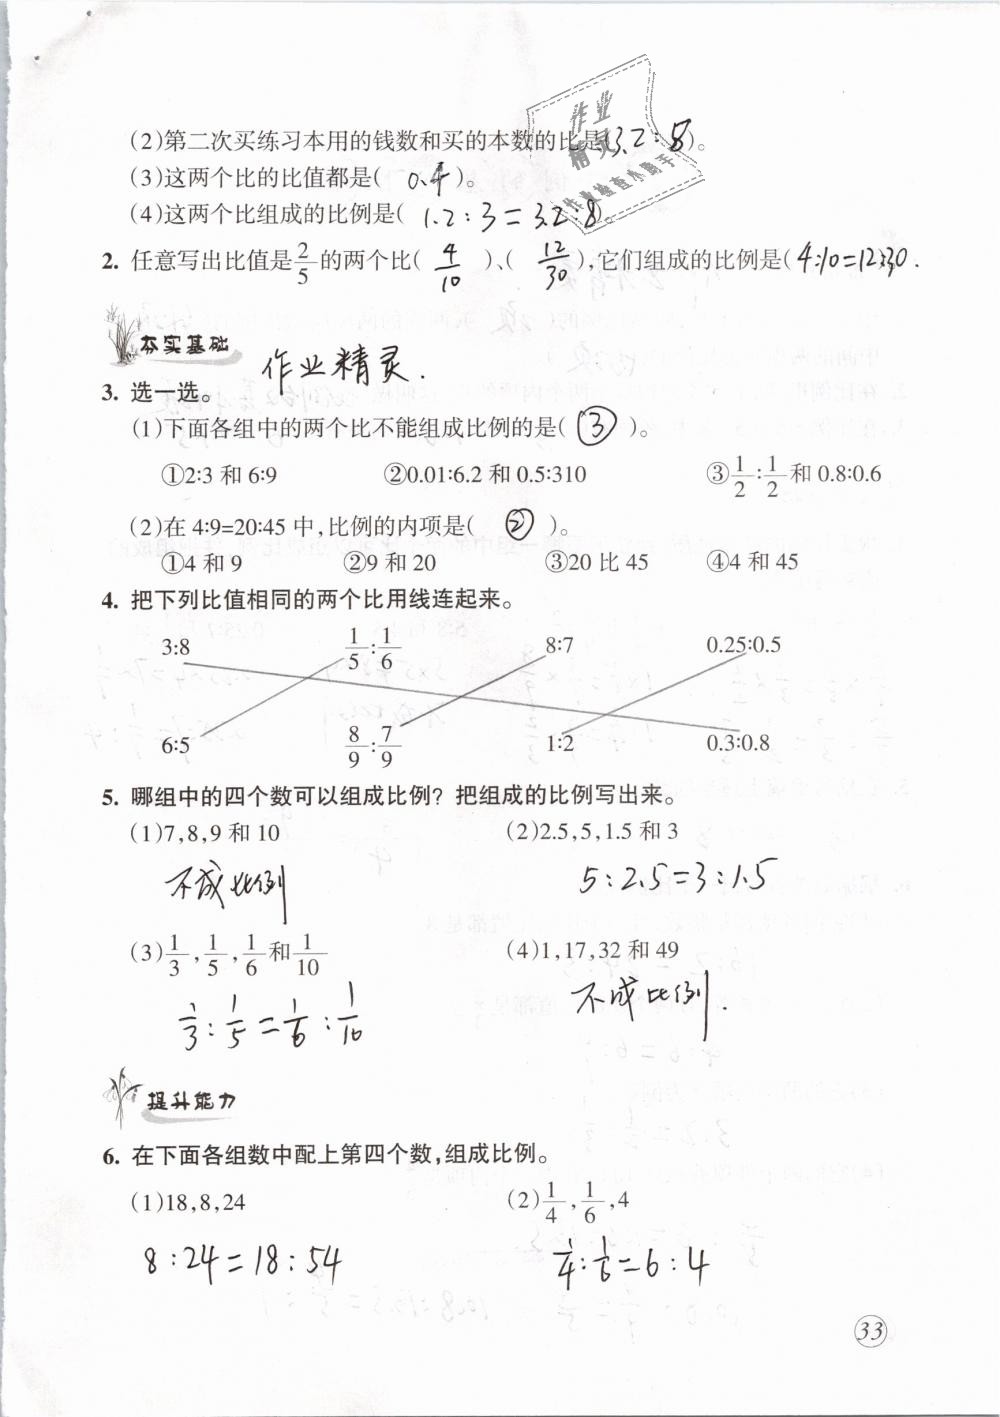 (2)第二次买练习本用的钱数和买的本数的比是(3.2:8)。
(3)这两个比的比值都是( 0.4 )。
(4)这两个比组成的比例是( 1.2:3=3.2:8 )
2. 任意写出比值是2/5的两个比( 4/10 )、( 12/30 ),它们组成的比例是( 4:10=12:30 .
夯实基础
作业精灵.
3. 选一选。
(1)下面各组中的两个比不能组成比例的是( ③ )。
①2:3 和 6:9 ②0.01:6.2 和 0.5:310 ③1/2:1/2 和 0.8:0.6
(2)在 4:9=20:45 中,比例的内项是( ② )。
①4 和 9 ②9 和 20 ③20 比 45 ④4 和 45
4. 把下列比值相同的两个比用线连起来。
3:8 1/5:1/6 8:7 0.25:0.5
6:5 8/9:7/9 1:2 0.3:0.8
5. 哪组中的四个数可以组成比例? 把组成的比例写出来。
(1)7,8,9 和 10 (2)2.5,5,1.5 和 3
不成比例 5:2.5=3:1.5
(3)1/3,1/5,1/6和1/10 (4)1,17,32 和 49
1/3:1/5=1/6:1/10 不成比例.
提升能力
6. 在下面各组数中配上第四个数,组成比例。
(1)18,8,24 (2)1/4,1/6,4
8:24=18:54 1/4:1/6=6:4
33
作业
精灵
作业检查小助手